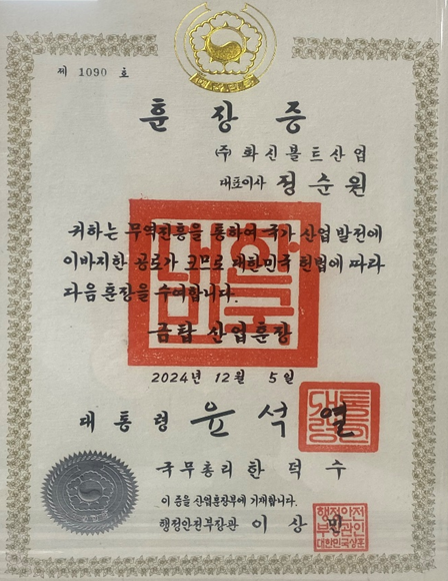 제 1090 호
훈장증
(주) 화신볼트산업
대표이사 정순원
귀하는 무역진흥을 통하여 국가 산업 발전에
이바지한 공로가 크므로 대한민국 헌법에 따라
다음 훈장을 수여합니다.
금탑 산업훈장
2024년 12월 5일
대통령 윤석열
국무총리 한덕수
이 증을 산업훈장부에 기재합니다.
행정안전부장관 이상민